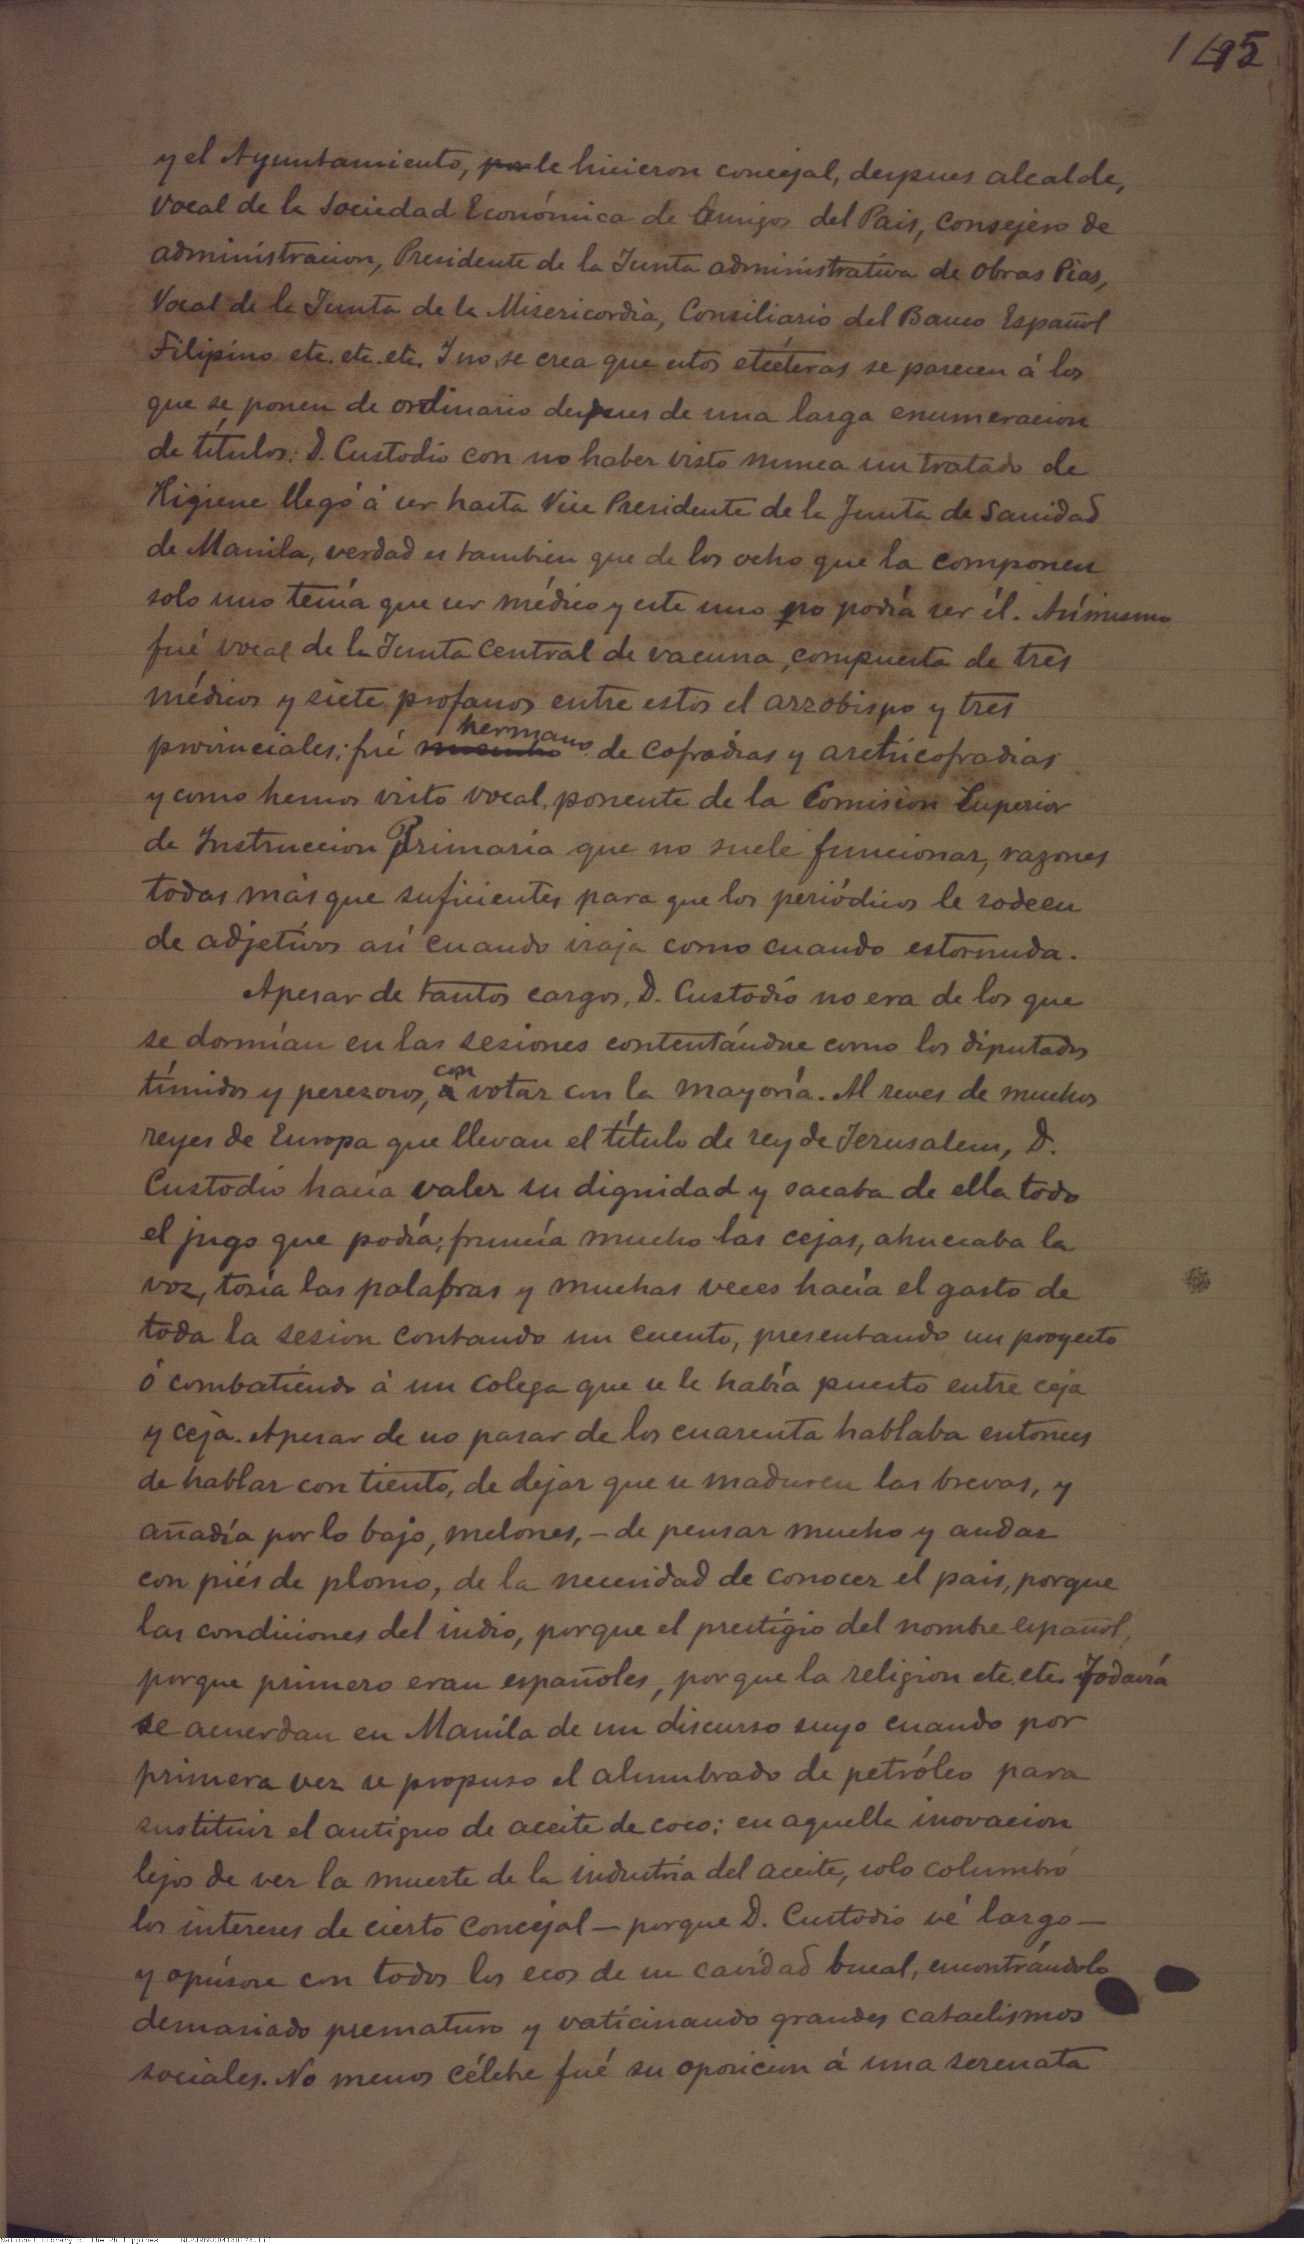 145
y el Ayuntamiento, por le hicieron concejal, despues alcalde,
vocal de la Sociedad Económica de Amigos del Pais, Consejero de
administracion, Presidente de la Junta administrativa de Obras Pias,
Vocal de la Junta de la Misericordia, Consiliario del Banco Español
Filipino etc. etc. etc. Y no se crea que estos etcéteras se parecen á los
que se ponen de ordinario despues de una larga enumeracion
de títulos: D. Custodio con no haber visto nunca un tratado de
Higiene llegó á ser hasta Vice Presidente de la Junta de Sanidad
de Manila, verdad es tambien que de los ocho que la componen
solo uno tenía que ser médico y este uno no podía ser él. Asímismo
fué vocal de la Junta Central de vacuna, compuesta de tres
médicos y siete profanos entre estos el arzobispo y tres
provinciales; fué hermano de cofradías y archicofradías
y como hemos visto vocal ponente de la Comision Superior
de Instruccion Primaria que no suele funcionar, razones
todas más que suficientes para que los periódicos le rodeen
de adjetivos así cuando viaja como cuando estornuda.
Apesar de tantos cargos, D. Custodio no era de los que
se dormían en las sesiones contentándose como los diputados
tímidos y perezosos, con votar con la mayoría. Al reves de muchos
reyes de Europa que llevan el título de rey de Jerusalem, D.
Custodio hacía valer su dignidad y sacaba de ella todo
el jugo que podía; fruncía mucho las cejas, ahuecaba la
voz, tosía las palabras y muchas veces hacía el gasto de
toda la sesion contando un cuento, presentando un proyecto
ó combatiendo á un colega que se le había puesto entre ceja
y ceja. Apesar de no pasar de los cuarenta hablaba entonces
de hablar con tiento, de dejar que se maduren las brevas, y
añadía por lo bajo, melones, – de pensar mucho y andar
con piés de plomo, de la necesidad de conocer el pais, porque
las condiciones del indio, porque el prestigio del nombre español,
porque primero eran españoles, porque la religion etc. etc. Todavía
se acuerdan en Manila de un discurso suyo cuando por
primera vez se propuso el alumbrado de petróleo para
sustituir el antiguo de aceite de coco; en aquella inovacion
lejos de ver la muerte de la industria del aceite, solo columbró
los intereses de cierto Concejal – porque D. Custodio vé largo –
y opúsose con todos los ecos de su cavidad bucal, encontrándolo
demasiado prematuro y vaticinando grandes cataclismos
sociales. No menos célebre fué su oposicion á una serenata